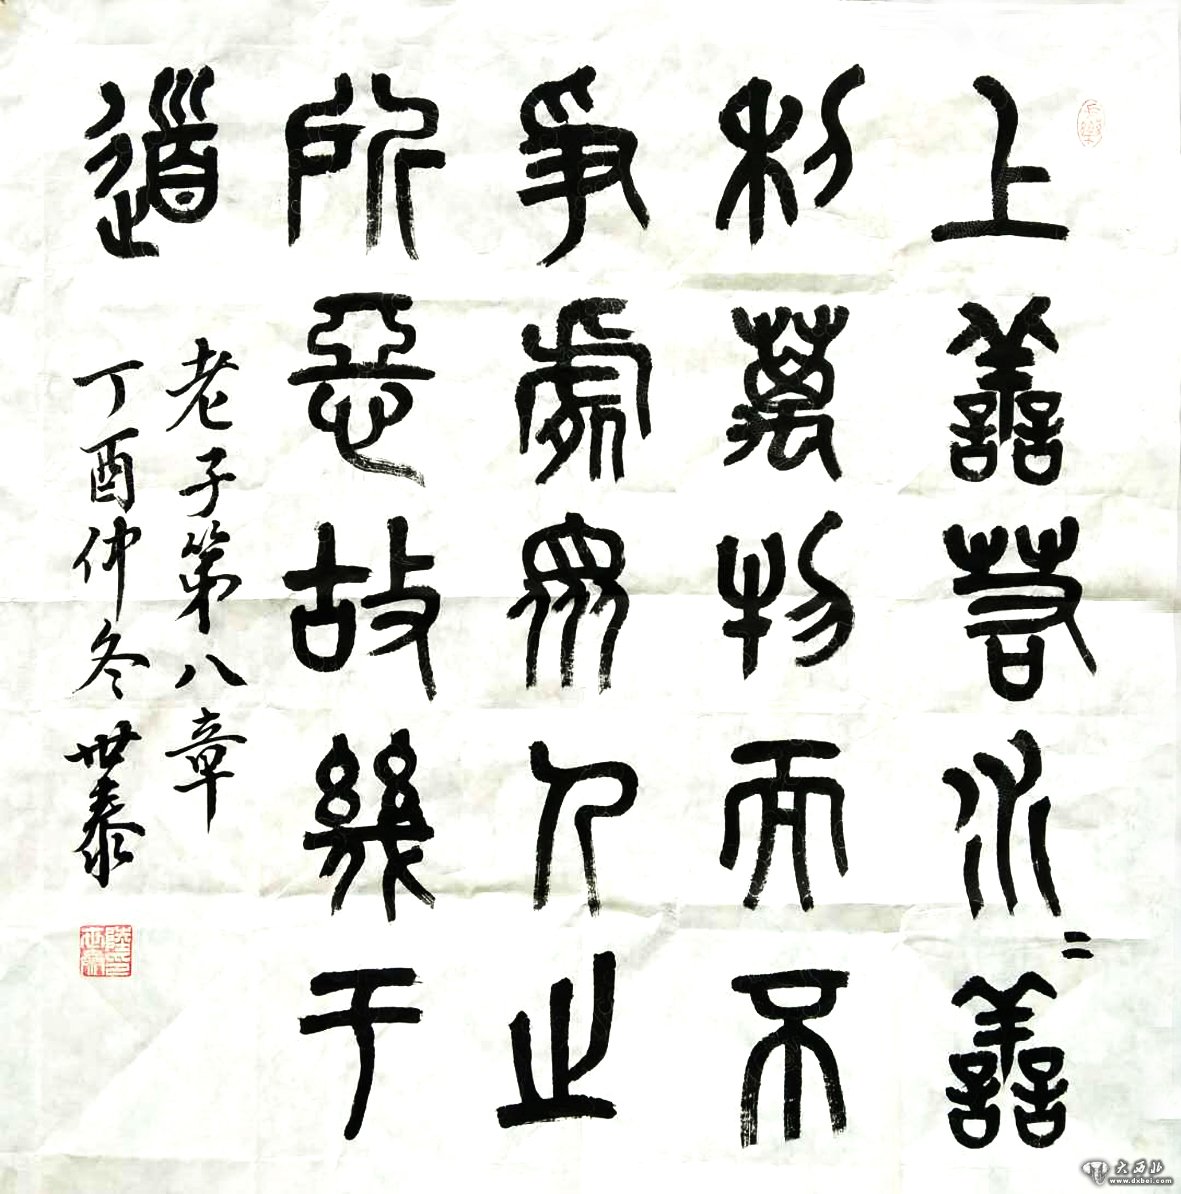 上善若水〻善
利萬物而不
爭處眾人之
所惡故幾于
道
老子第八章
丁酉仲冬世泰
大西北
www.dxbei.com